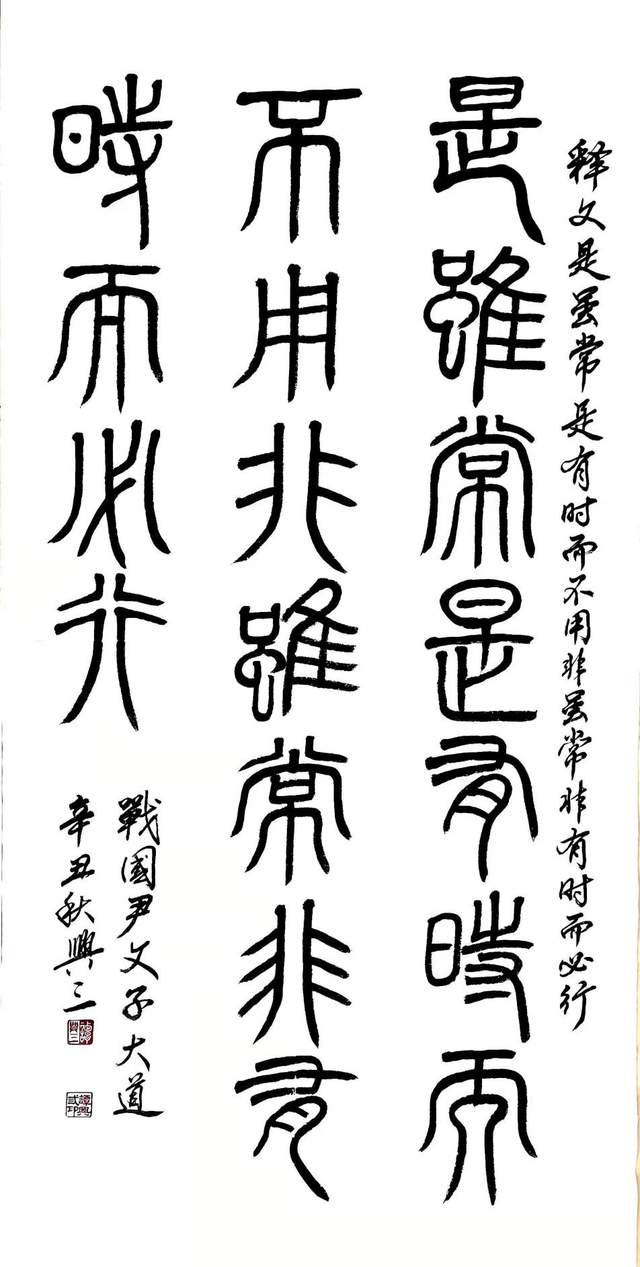 释文是虽常是有时而不用非虽常非有时而必行
是雖常是有時而
不用非雖常非有
時而必行
戰國尹文子大道
辛丑秋興三